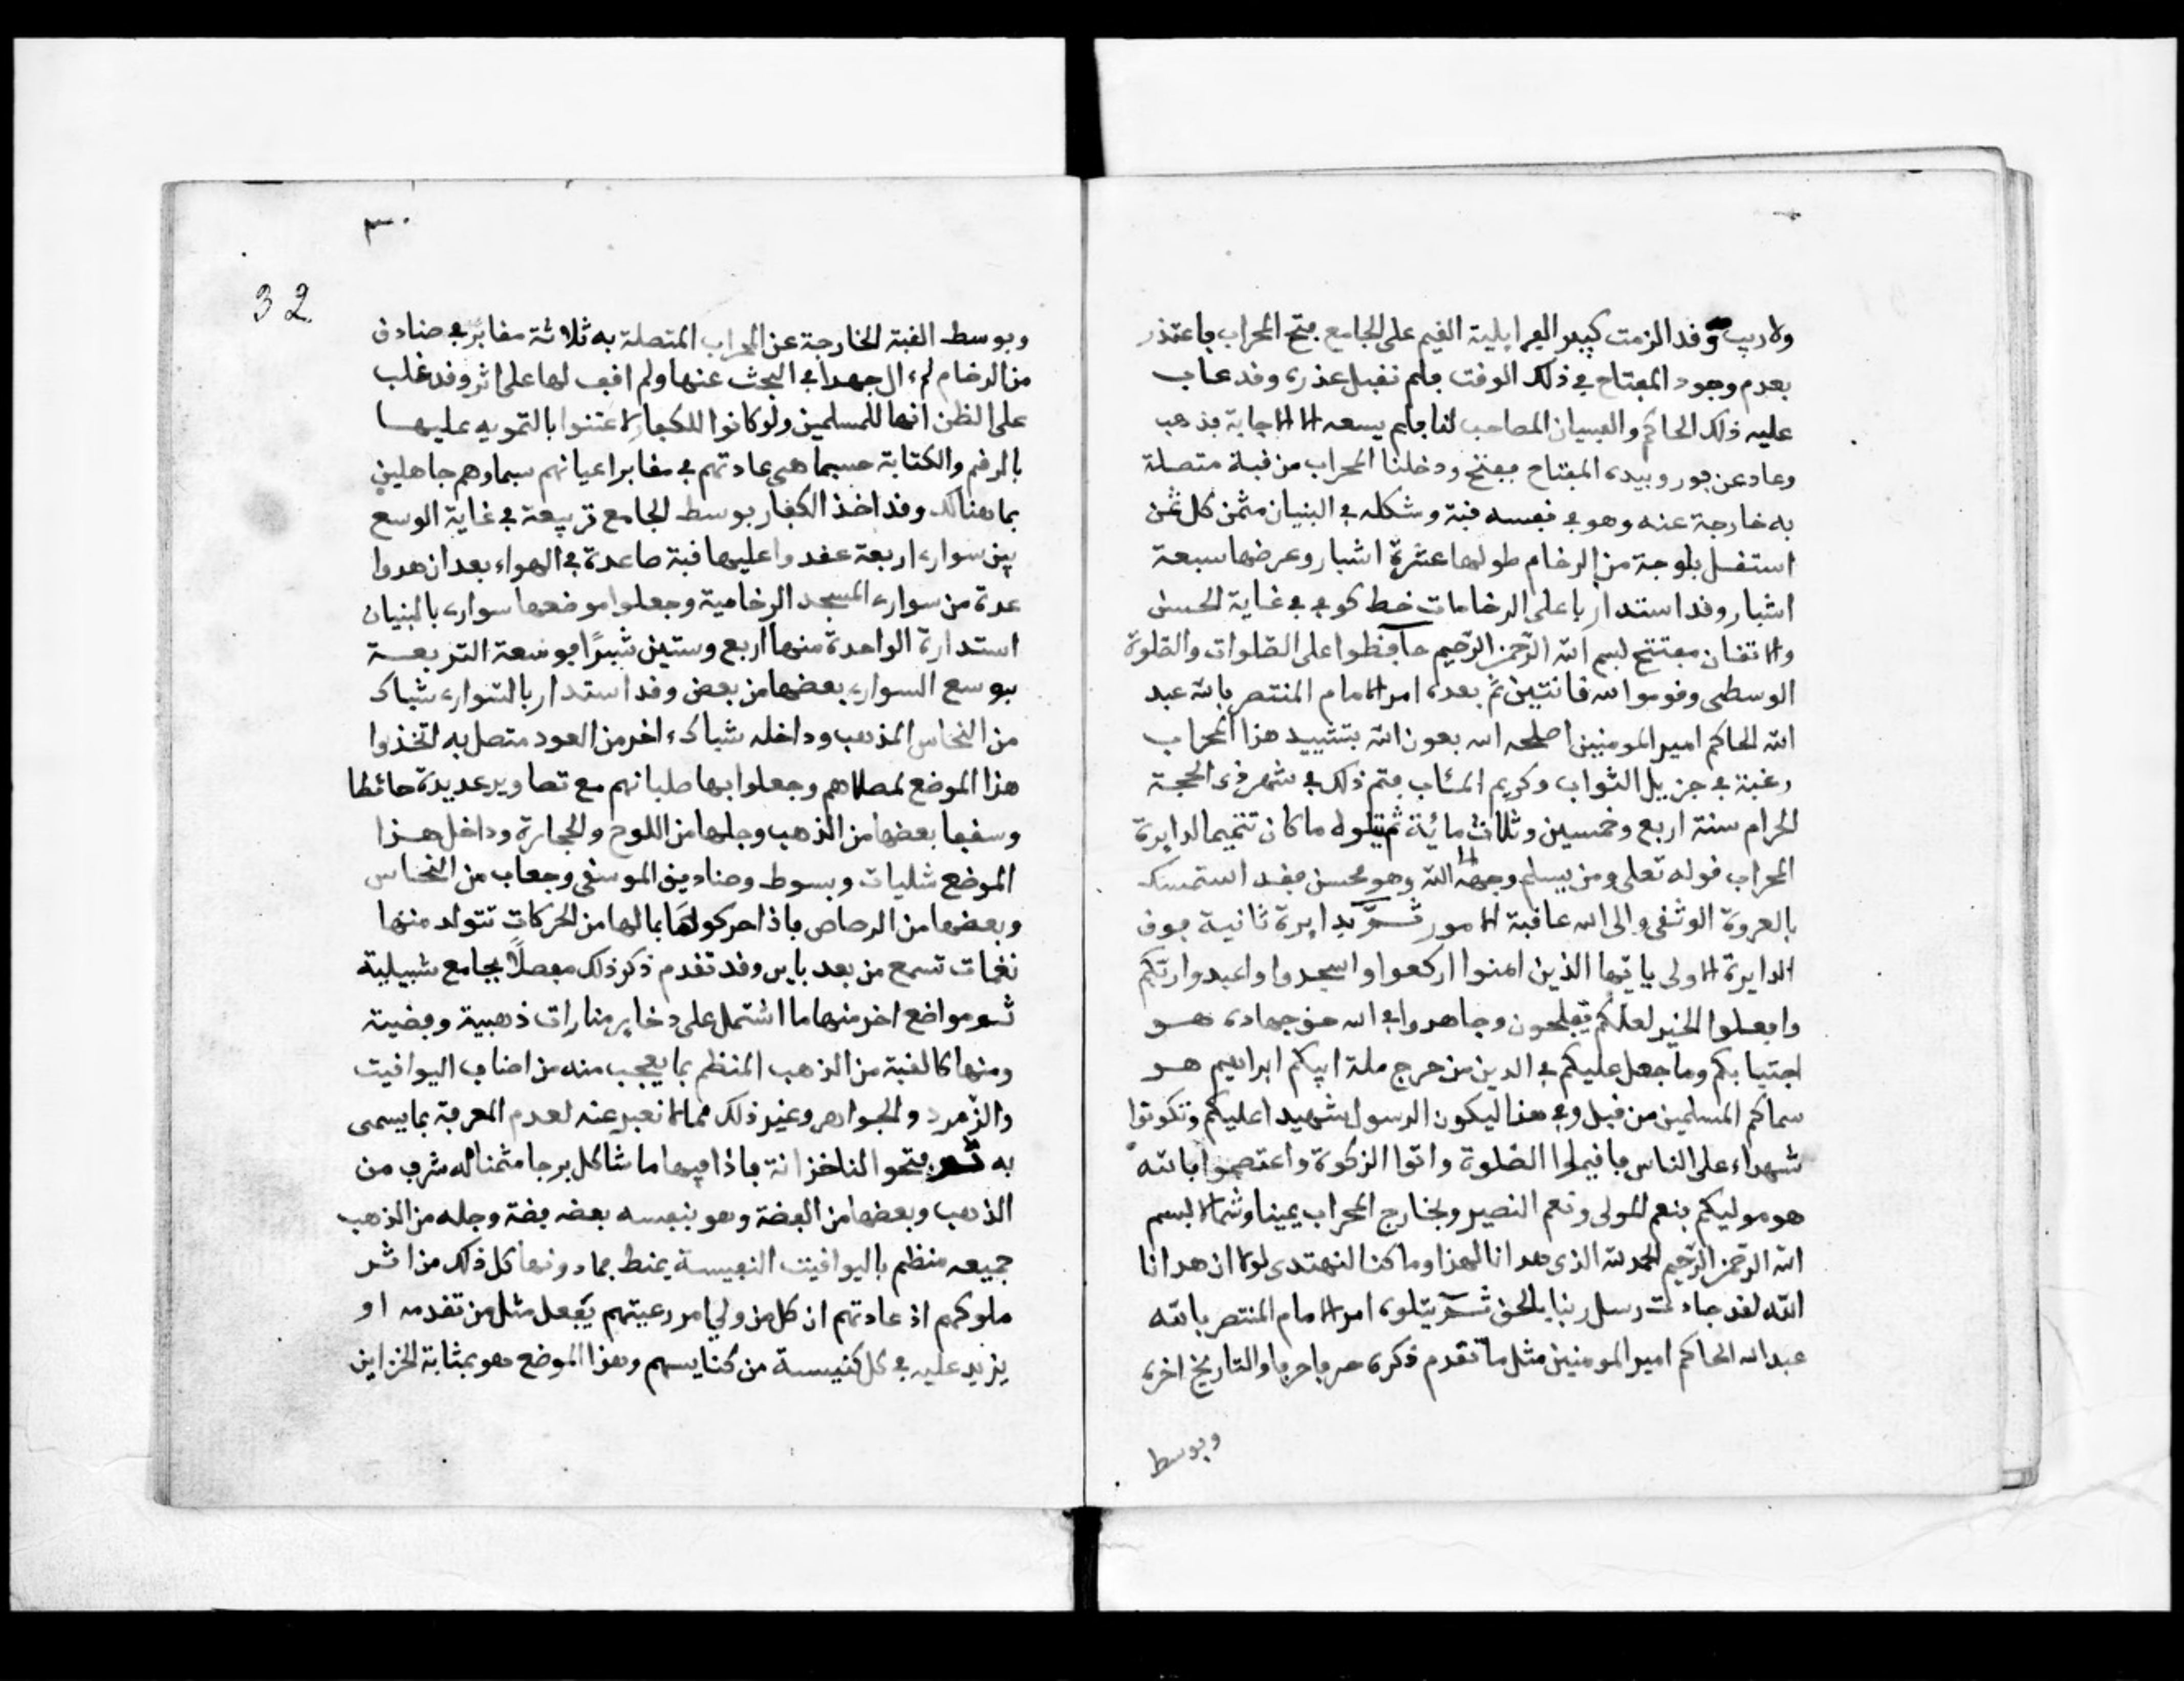 ولا ريب وقد الزمت كبير الفرايلية القيم على الجامع بفتح المحراب فاعتذر
بعدم وجود المفتاح في ذلك الوقت فلم نقبل عذره وقد عاب
عليه ذلك الحاكم والفسيان المصاحب لنا فلم يسعه الا الاجابة فذهب
وعاد عن فور وبيده المفتاح ففتح ودخلنا المحراب من قبلة متصلة
به خارجة عنه وهو في نفسه قبة وشكله في البنيان مثمن كل ثمن
استقل بلوحة من الرخام طولها عشرة اشبار وعرضها سبعة
اشبار وقد استدار باعلى الرخامات خط كوفي في غاية الحسن
والاتقان مفتتح بسم الله الرحمن الرحيم حافظوا على الصلوات والصلوة
الوسطى وقوموا لله قانتين ثم بعده امر الامام المنتصر بالله عبد
الله الحاكم امير المومنين اصلحه الله بعون الله بتشييد هذا المحراب
رغبة في جزيل الثواب وكريم المئاب فتم ذلك في شهر ذي الحجة
الحرام سنة اربع وخمسين وثلاث مائة ثم يتلوه ما كان تتميما لدايرة
المحراب قوله تعلى ومن يسلم وجهه الى الله وهو محسن فقد استمسك
بالعروة الوثقى والى الله عاقبة الامور ثم بدايرة ثانية فوق
الدايرة الاولى يايها الذين امنوا اركعوا واسجدوا واعبدوا ربكم
وافعلوا الخير لعلكم تفلحون وجاهدوا في الله حق جهاده هو
اجتباكم وما جعل عليكم في الدين من حرج ملة ابيكم ابراهيم هو
سماكم المسلمين من قبل وفي هذا ليكون الرسول شهيدا عليكم وتكونوا
شهداء على الناس فاقيموا الصلوة واتوا الزكوة واعتصموا بالله
هو موليكم فنعم المولى ونعم النصير وبخارج المحراب يمينا وشمالا بسم
الله الرحمن الرحيم الحمد لله الذي هدانا لهذا وما كنا لنهتدى لولا ان هدانا
الله لقد جاءت رسل ربنا بالحق ثم يتلوه امر الامام المنتصر بالله
عبد الله الحاكم امير المومنين مثل ما تقدم ذكره حرفا حرفا والتاريخ اخره
وبوسط
٣٠
32
وبوسط القبة الخارجة عن المحراب المتصلة به ثلاثة مقابر في صنادق
من الرخام لم ءال جهدا في البحث عنها ولم اقف لها على اثر وقد غلب
على الظن انها للمسلمين ولو كانوا للكفار لاعتنوا بالتمويه عليها
بالرقم والكتابة حسبما هي عادتهم في مقابر اعيانهم سيما وهم جاهلين
بما هنالك وقد اخذ الكفار بوسط الجامع تربيعة في غاية الوسع
بين سوارء اربعة عقدوا عليها قبة صاعدة في الهواء بعد ان هدوا
عدة من سوارء المسجد الرخامية وجعلوا موضعها سوارء بالبنيان
استدارة الواحدة منها اربع وستين شبرًا فوسعة التربعة
بوسع السوارء بعضها من بعض وقد استدار بالسوارء شباك
من النحاس المذهب وداخله شباك ءاخر من العود متصل به اتخذوا
هذا الموضع لمصلاهم وجعلوا بها صلبانهم مع تصاوير عديدة حائطا
وسقفا بعضها من الذهب وجلها من اللوح والحجارة وداخل هذا
الموضع شليات وبسوط وصناديق الموسقى وجعاب من النحاس
وبعضها من الرصاص فاذا حركوا لها بما لها من الحركات تتولد منها
نغمات تسمع من بعد بايس وقد تقدم ذكر ذلك مفصلًا بجامع شبيلية
ثم مواضع اخر منها ما اشتمل على دخاير منارات ذهبية وفضية
ومنها كالقبة من الذهب المنظم بما يعجب منه من اصناف اليواقيت
والزمرد والجواهر وغير ذلك مما لا نعبر عنه لعدم المعرفة بما يسمى
به ثم فتحوا لنا خزانة فاذا فيها ما شاكل برجا مثمنا له شرف من
الذهب وبعضها من الفضة وهو بنفسه بعضه فضة وجله من الذهب
جميعه منظم باليواقيت النفيسة يمنط فما دونها كل ذلك من اثر
ملوكهم اذ عادتهم ان كل من ولي امر رعيتهم يفعل مثل من تقدمه او
يزيد عليه في كل كنيسة من كنايسهم وهذا الموضع هو بمثابة الخزاين